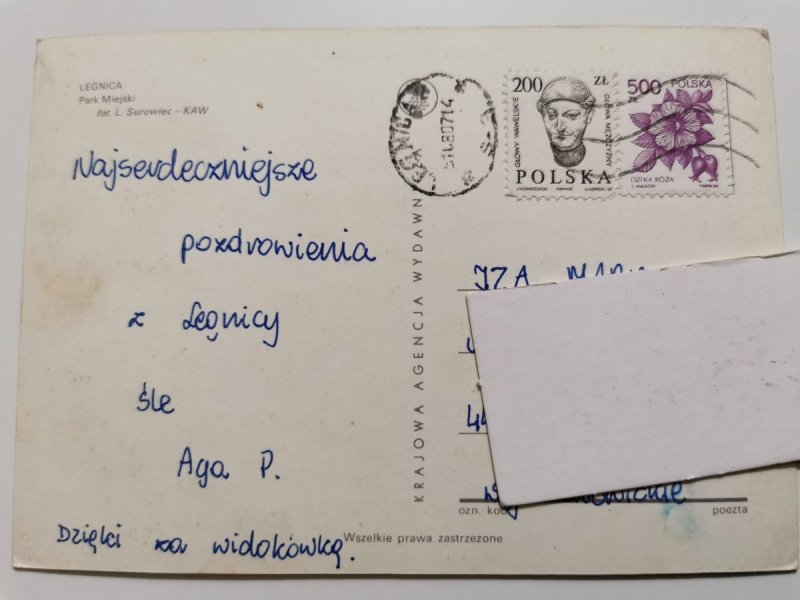 LEGNICA
Park Miejski
fot. L. Surowiec - KAW
Najserdeczniejsze
pozdrowienia
z Legnicy
śle
Aga P.
Dzięki za widokówkę.
KRAJOWA AGENCJA WYDAWN
200 ZŁ
GŁOWY WAWELSKIE
GŁOWA MĘŻCZYZNY
POLSKA
500 ZŁ
POLSKA
DZIKA RÓŻA
IZA
44
ozn. kod
poczta
Wszelkie prawa zastrzeżone